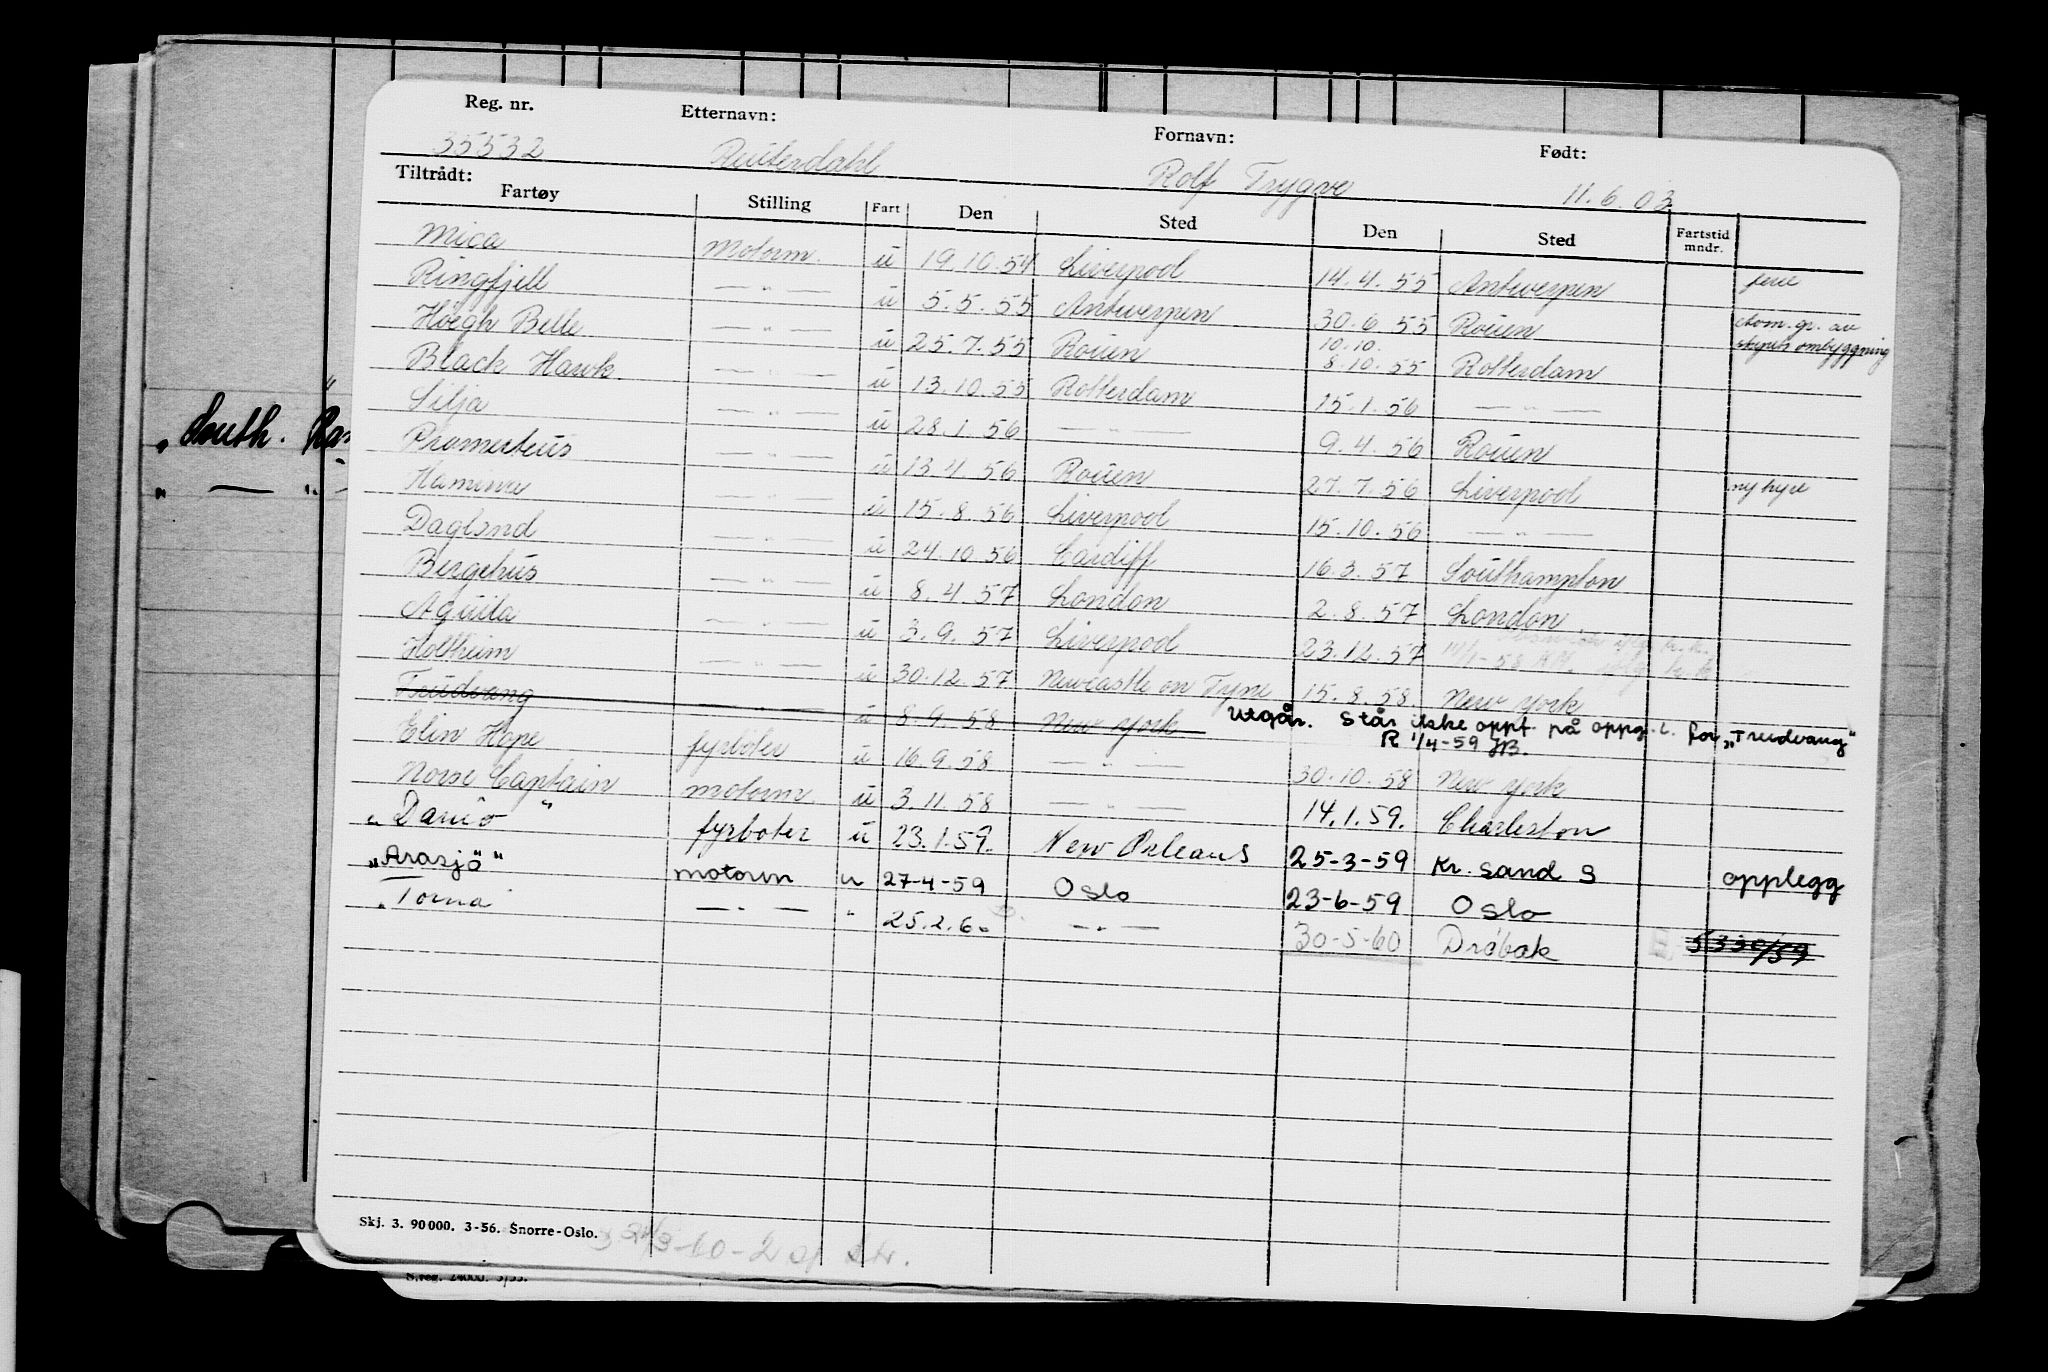 Reg. nr. Etternavn: Fornavn: Født:
35532 Ruiterdahl Rolf Trygve 11.6.03
Tiltrådt:
Fartøy Stilling Fart Den Sted Den Sted Fartstid mndr.
Mica Motorm. u 19.10.54 Liverpool 14.4.55 Antwerpen ferie
Ringfjell — " — u 5.5.55 Antwerpen 30.6.55 Rouen avm. gr. av skipets ombygging
Höegh Belle — " — u 25.7.55 Rouen 10.10. 8.10.55 Rotterdam
Black Hawk — " — u 13.10.55 Rotterdam 15.1.56 — " —
Silja — " — u 28.1.56 — " — 9.4.56 Rouen
Prometeus — " — u 13.4.56 Rouen 27.7.56 Liverpool ny hyre
— " — u 15.8.56 Liverpool 15.10.56 — " —
Dagland — " — u 24.10.56 Cardiff 16.3.57 Southampton
Bergehus — " — u 8.4.57 London 2.8.57 London
Aquila — " — u 3.9.57 Liverpool 23.12.57
Holtheim — " — u 30.12.57 Newcastle on Tyne 15.8.58 New York
Trudvang — " — u 8.9.58 New York Utgår. Står ikke oppf. på oppg. for "Trudvang"
R 1/4-59 JB.
Elin Hope fyrbøter u 16.9.58 — " — 30.10.58 New York
Norse Captain motorm. u 3.11.58 — " — 14.1.59. Charleston
"Danio" fyrbøter u 23.1.59. New Orleans 25-3-59 Kr. sand S opplegg
"Arasjö" motorm u 27-4-59 Oslo 23-6-59 Oslo
"Torna — " — " 25.2.60 — " — 30-5-60 Drøbak 5330/59
"South. Ra
" — " —
Skj. 3. 90000. 3-56. Snorre-Oslo.
S.reg. 24000. 5/53.